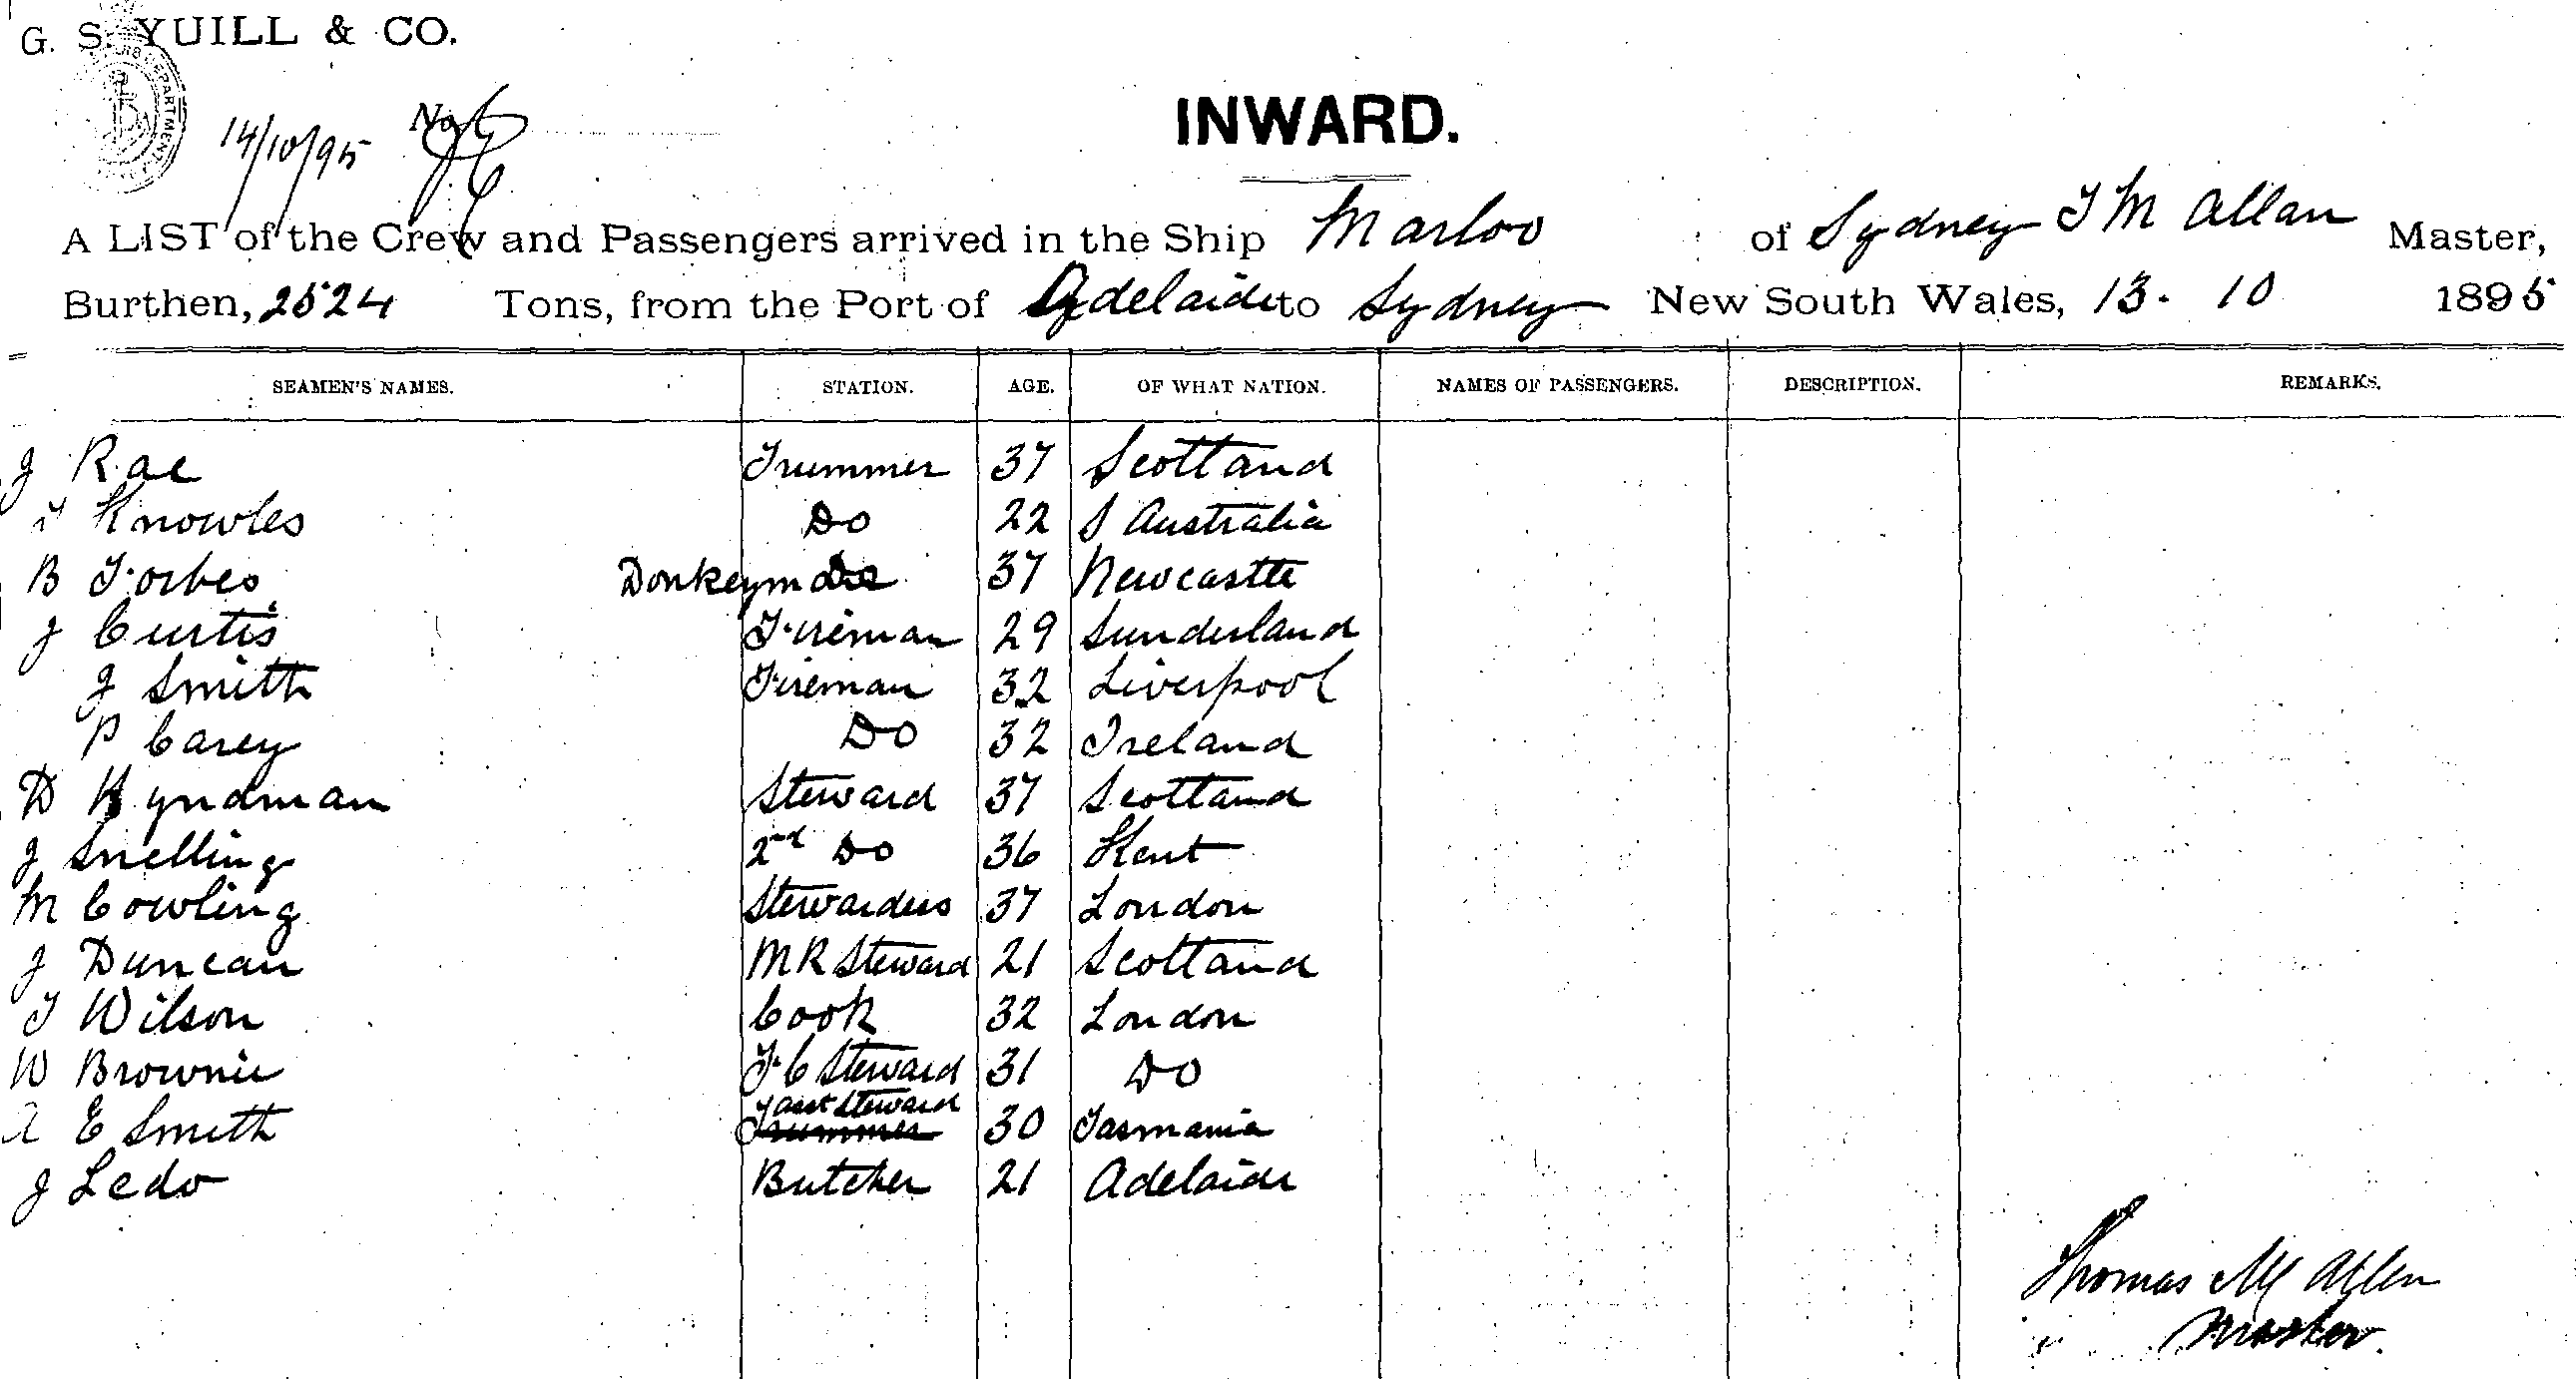 G. S. YUILL & CO.
14/10/95 No.
INWARD.
A LIST of the Crew and Passengers arrived in the Ship Marloo of Sydney T M Allan Master,
Burthen, 2524 Tons, from the Port of Adelaide to Sydney New South Wales, 13. 10 1895
SEAMEN'S NAMES. STATION. AGE. OF WHAT NATION. NAMES OF PASSENGERS. DESCRIPTION. REMARKS.
J Rae Trummer 37 Scotland
T Knowles Do 22 S Australia
B Forbes Donkeyman 37 Newcastle
J Curtis Fireman 29 Sunderland
J Smith Fireman 32 Liverpool
P Carey Do 32 Ireland
D Hyndman Steward 37 Scotland
J Snelling 2nd Do 36 Kent
M Cowling Stewardess 37 London
J Duncan M R Steward 21 Scotland
T Wilson Cook 32 London
W Brownie F C Steward 31 Do
A E Smith Steward Trummer 30 Tasmania
J Ledo Butcher 21 Adelaide
Thomas M Allen
Master.